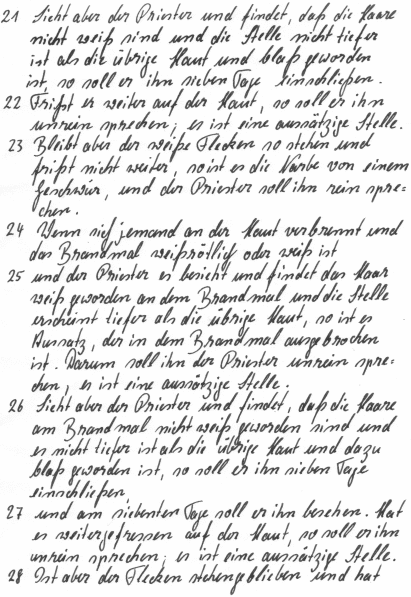 21 Sieht aber der Priester und findet, daß die Haare
nicht weiß sind und die Stelle nicht tiefer
ist als die übrige Haut und blaß geworden
ist, so soll er ihn sieben Tage einschließen.
22 Frißt es weiter auf der Haut, so soll er ihn
unrein sprechen; es ist eine aussätzige Stelle.
23 Bleibt aber der weiße Flecken so stehen und
frißt nicht weiter, so ist es die Narbe von einem
Geschwür, und der Priester soll ihn rein spre=
chen.
24 Wenn sich jemand an der Haut verbrennt und
das Brandmal weißrötlich oder weiß ist
25 und der Priester es besieht und findet das Haar
weiß geworden an dem Brandmal und die Stelle
erscheint tiefer als die übrige Haut, so ist es
Aussatz, der in dem Brandmal ausgebrochen
ist. Darum soll ihn der Priester unrein spre=
chen; es ist eine aussätzige Stelle.
26 Sieht aber der Priester und findet, daß die Haare
am Brandmal nicht weiß geworden sind und
es nicht tiefer ist als die übrige Haut und dazu
blaß geworden ist, so soll er ihn sieben Tage
einschließen,
27 und am siebenten Tage soll er ihn besehen. Hat
es weitergefressen auf der Haut, so soll er ihn
unrein sprechen; es ist eine aussätzige Stelle.
28 Ist aber der Flecken stehengeblieben und hat